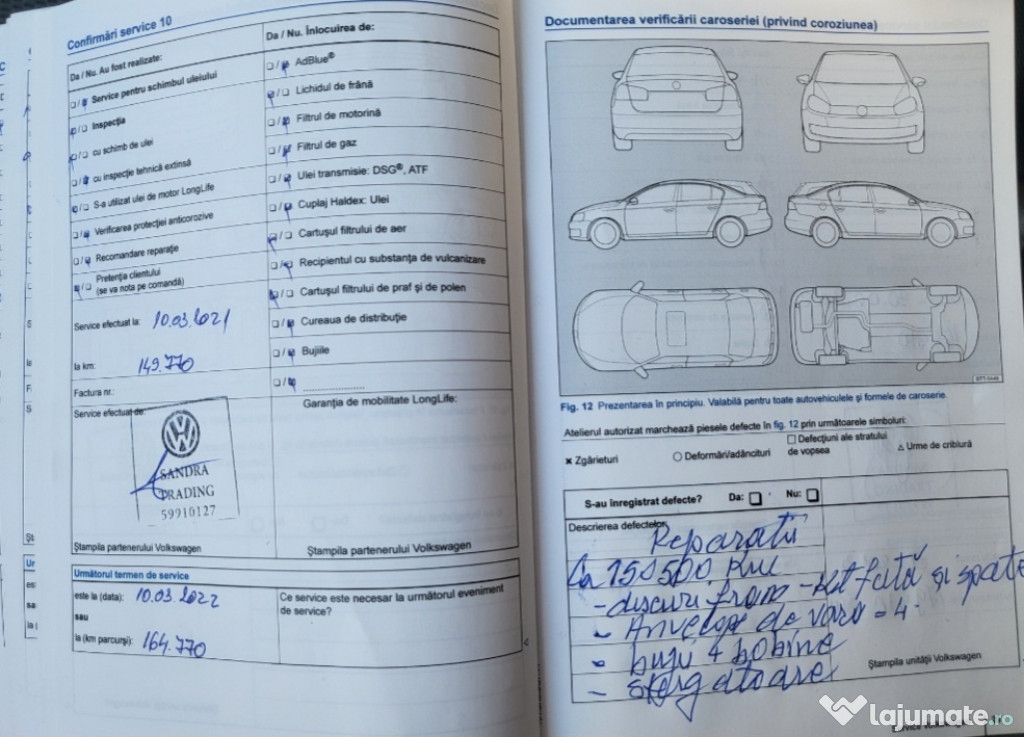 Confirmări service 10
Da / Nu. Au fost realizate:
Service pentru schimbul uleiului
Inspecţia
cu schimb de ulei
cu inspecţie tehnică extinsă
S-a utilizat ulei de motor LongLife
Verificarea protecţiei anticorozive
Recomandare reparaţie
Pretenţia clientului
(se va nota pe comandă)
Service efectuat la: 10.03.2021
la km: 149.770
Factura nr.:
Service efectuat de:
SANDRA
TRADING
59910127
Ştampila partenerului Volkswagen
Da / Nu. Înlocuirea de:
AdBlue®
Lichidul de frână
Filtrul de motorină
Filtrul de gaz
Ulei transmisie: DSG®, ATF
Cuplaj Haldex: Ulei
Cartuşul filtrului de aer
Recipientul cu substanţa de vulcanizare
Cartuşul filtrului de praf şi de polen
Cureaua de distribuţie
Bujiile
Garanţia de mobilitate LongLife:
Ştampila partenerului Volkswagen
Următorul termen de service
este la (data): 10.03.2022
sau
la (km parcurşi): 164.770
Ce service este necesar la următorul eveniment
de service?
Documentarea verificării caroseriei (privind coroziunea)
Fig. 12 Prezentarea în principiu. Valabilă pentru toate autovehiculele şi formele de caroserie.
Atelierul autorizat marchează piesele defecte în fig. 12 prin următoarele simboluri:
× Zgârieturi
○ Deformări/adâncituri
□ Defecţiuni ale stratului
de vopsea
△ Urme de criblură
S-au înregistrat defecte? Da: □ Nu: □
Descrierea defectelor:
Reparatii
La 150500 km
- discuri frana - set fată și spate
- Anvelope de vară - 4
- bujii 4 bobine
- ștergatoare
Ştampila unităţii Volkswagen
lajumate.ro